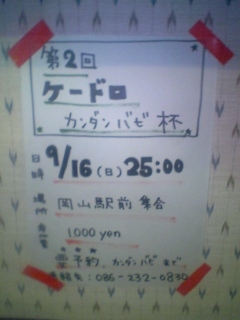 第2回
ケードロ
カンダンバビ杯
日時 9/16(日) 25:00
場所 岡山駅前 集合
1000 yen
予約 カンダンバビ まで
連絡先:086-232-0830